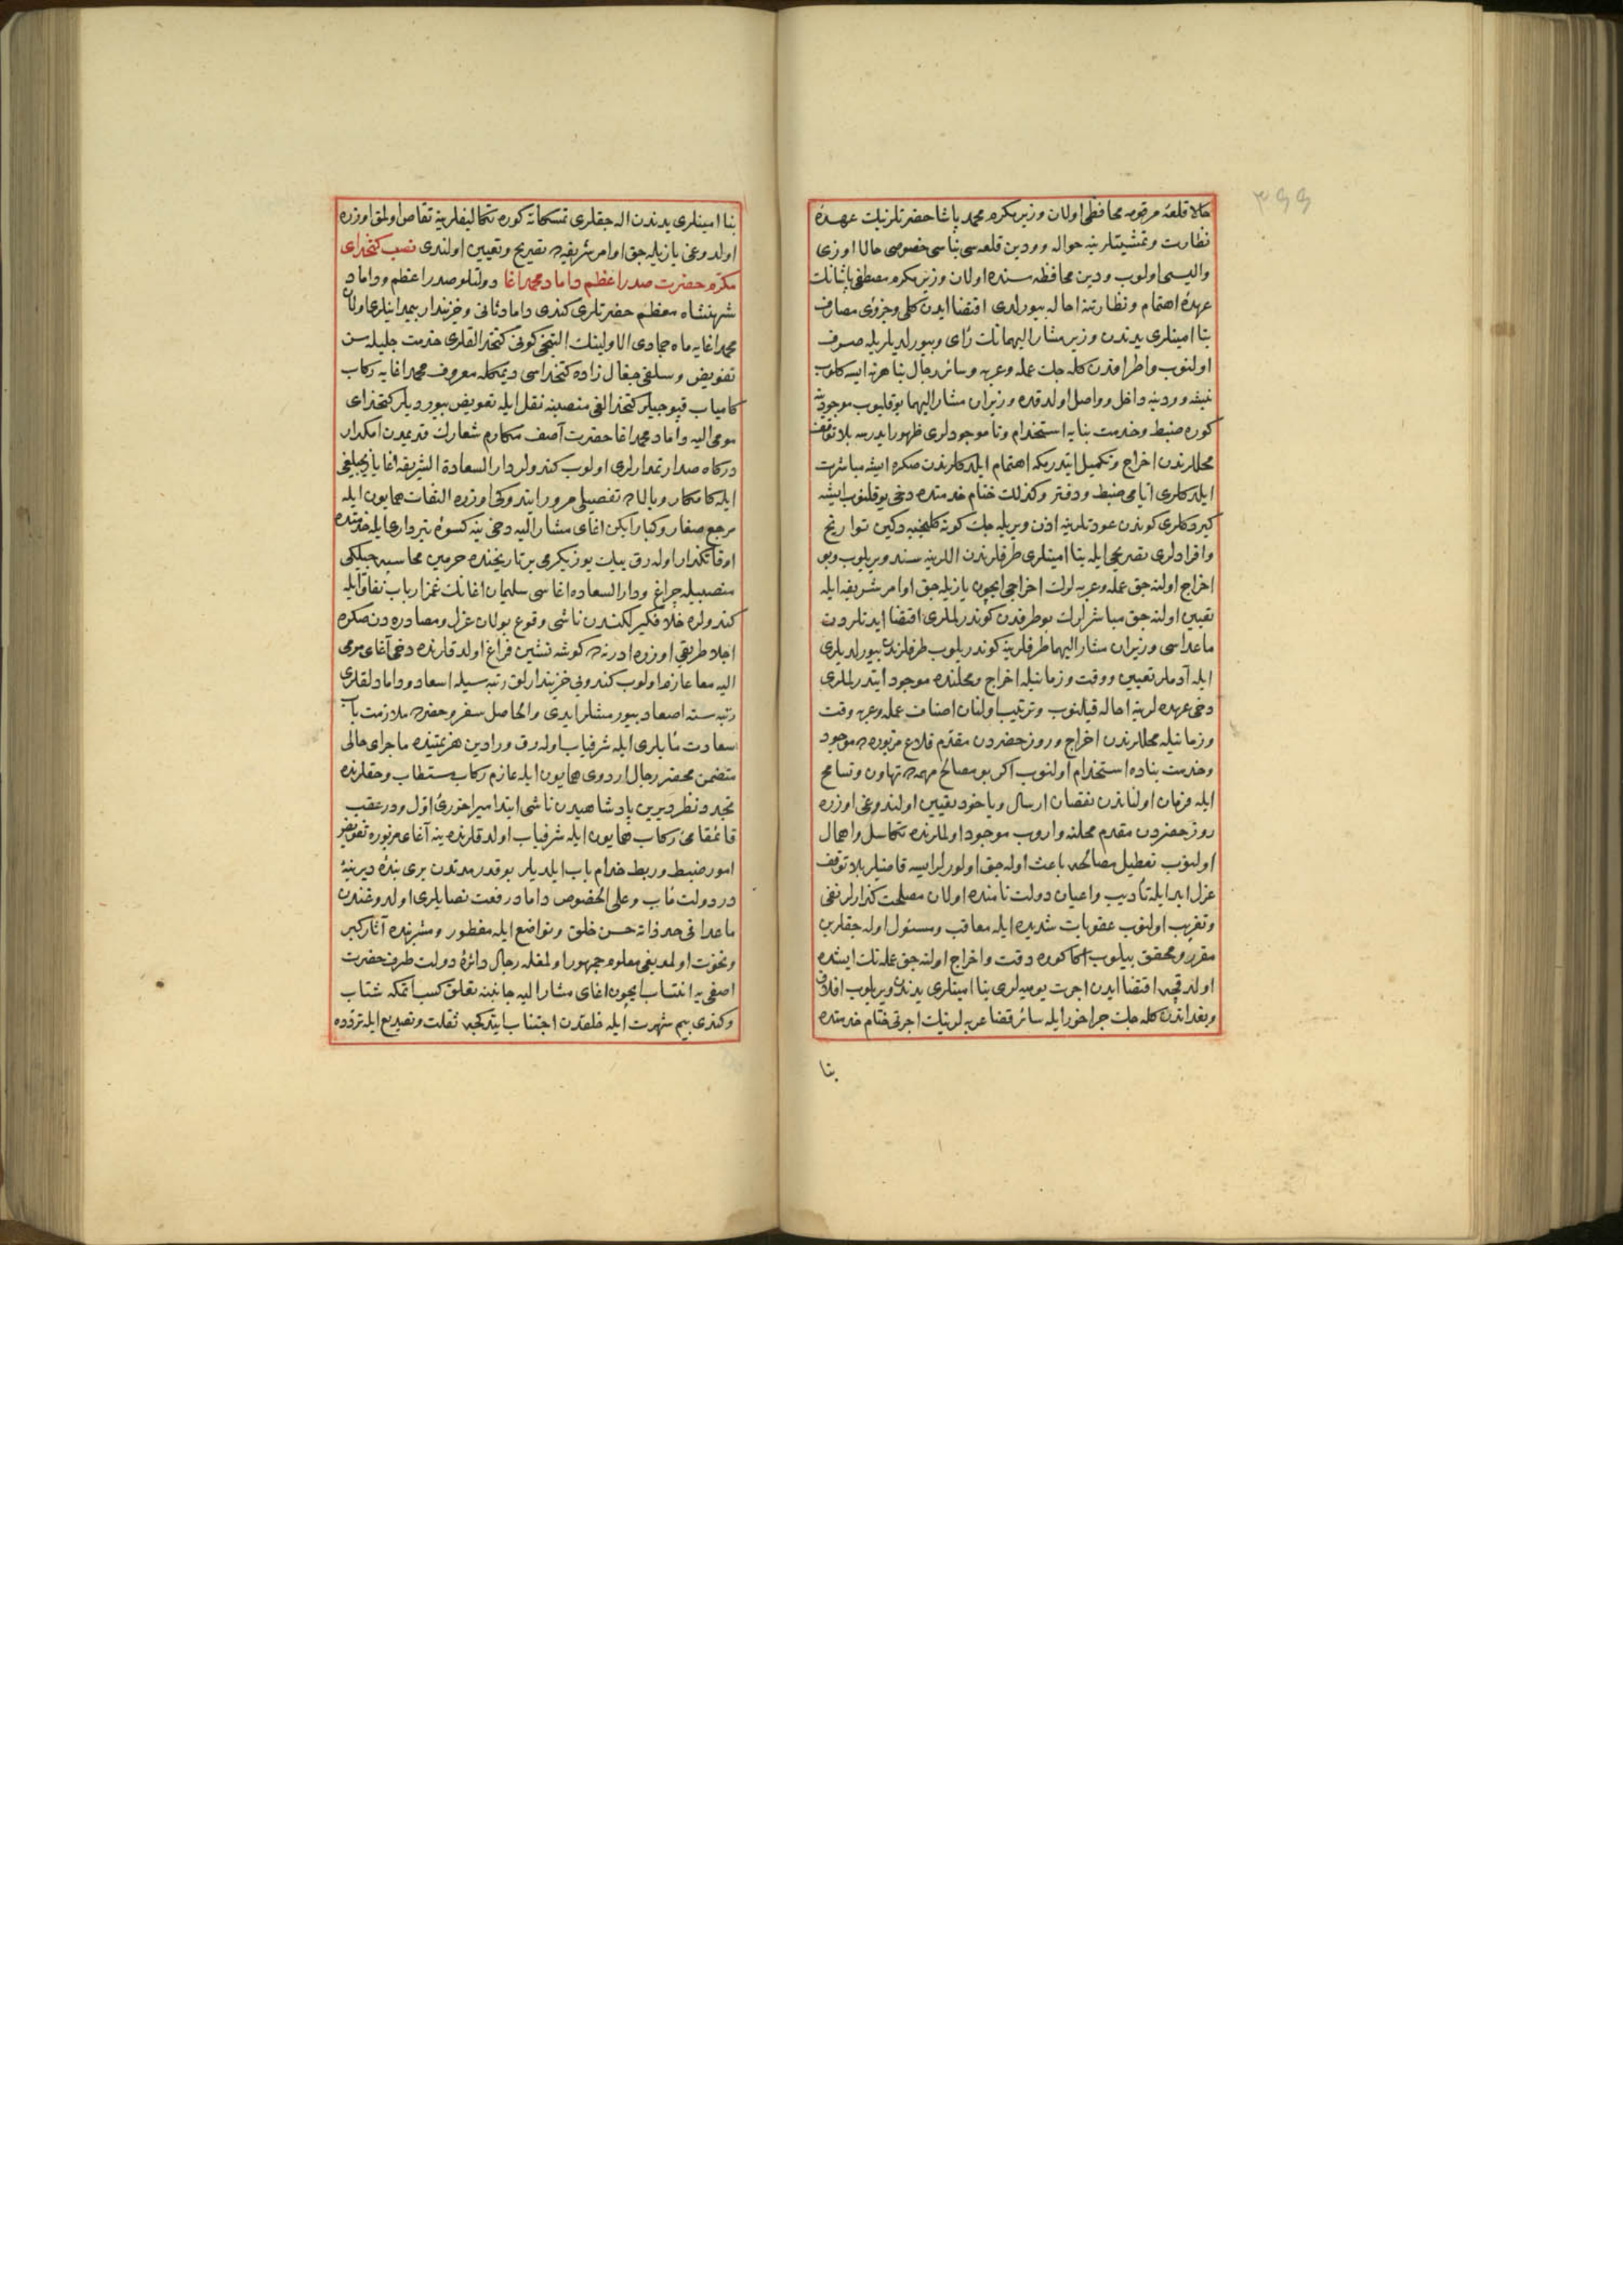 ۳۹۹
حالا قلعهٔ مرقومه محافظی اولان وزیر مکرم محمد پاشا حضرتلرینك عهدهٔ
نظارت و تمشیتلرینه حواله و ودین قلعه‌سی بناسی خصوصی حالا اوزی
والیسی اولوب ودین محافظه‌سنده اولان وزیر مکرم مصطفی پاشانك
عهدهٔ اهتمام و نظارتنه احاله بیورلدی اقتضا ایدن کلی و جزوی مصارف
بنا امینلری یدندن وزیر مشار الیهمانك رأی و بیورلدیلریله صرف
اولنوب و اطرافدن کله جك عمله و عربه و سائر رجال بنا هر نه ایسه کلوب
نیشه و ودینه داخل و واصل اولدقده وزیران مشار الیهما یوقلیوب موجودینه
کوره ضبط و خدمت بنایه استخدام و نا موجودلری ظهور ایدرسه بلا توقف
محللرندن اخراج و تکمیل ایتدرمکه اهتمام ایلدکلرندن صکره ایشه مباشرت
ایلدکلری ایامی ضبط و دفتر و کذلك ختام خدمتده دخی یوقلنوب ایشه
کیردکلری کوندن عودتلرینه اذن ویریله جك کونه کلنجیه دکین تواریخ
و افرادلری تصریحی ایله بنا امینلری طرفلرندن اللرینه سند ویریلوب و بو
اخراج اولنه جق عمله و عربه لرك اخراجی ایچون یازیله جق اوامر شریفه ایله
تعیین اولنه جق مباشرلرك بو طرفدن کوندرلملری اقتضا ایدنلردن
ماعداسی وزیران مشار الیهما طرفلرینه کوندریلوب طرفلرندن بیورلدیلری
ایله آدملر تعیین و وقت و زمانیله اخراج و محلنده موجود ایتدرلملری
دخی عهده لرینه احاله قیلنوب و ترتیب اولنان اصناف عمله و عربه وقت
و زمانیله محللرندن اخراج و روز حضردن مقدم قلاع مزبوره‌ده موجود
و خدمت بناده استخدام اولنوب اکر بو مصالح مهمه‌ده تهاون و تسامح
ایله فرمان اولناندن نقصان ارسال و یاخود تعیین اولندوغی اوزره
روز حضردن مقدم محلنه واروب موجود اولملرنده تکاسل و اهمال
اولنوب تعطیل مصالحه باعث اوله جق اولورلر ایسه قاضیلر بلا توقف
عزل ابد ایله تأدیب و اعیان دولت نامنده اولان مصلحت کذارلر نفی
و تغریب اولنوب عقوبات شدیده ایله معاقب و مسئول اوله جقلرین
مقرر و محقق بیلوب اکا کوره دقت و اخراج اولنه جق عمله نك ایشده
اولدقجه اقتضا ایدن اجرت یومیه لری بنا امینلری یدندن ویریلوب افلاق
و بغداندن کله جك جراخور ایله سائر قضا عربه لرینك اجرتی ختام خدمتده
بنا
بنا امینلری یدندن اله جقلری تمسکاته کوره تکالیفلرینه تقاص اولمق اوزره
اولدوغی یازیله جق اوامر شریفه‌ده تصریح و تعیین اولندی نصب کتخدای
مکرم حضرت صدر اعظم داماد محمد اغا دولتلو صدر اعظم و داماد
شهنشاه معظم حضرتلری کندی داماد ثانی و خزیندار بیمدانیلری اولان
محمد اغایه ماه جمادی الاولینك التنجی کونی کتخدالقلری خدمت جلیله‌سن
تفویض و سلفی جغال زاده کتخداسی دیمکله معروف محمد اغایه رکاب
کامیاب قپوجیلر کتخدالغی منصبنه نقل ایله تفویض بیوردیلر کتخدای
مومی الیه داماد محمد اغا حضرت آصف مکارم شعارك قدیمدن امکدار
درکاه صدارتمدارلری اولوب کندولر دار السعادة الشریفه اغا یازیجیلغی
ایله کامکار و بالاده تفصیلی مرور ایتدوکی اوزره التفات همایون ایله
مرجع صغار و کبار ایکن اغای مشار الیه دخی ینه کسوهٔ تبرداری ایله خدمتنده
اوقاتکذار اوله رق بیك یوز یکرمی بر تاریخنده حرمین محاسبه جیلکی
منصبیله چراغ و دار السعاده اغاسی سلیمان اغانك غمز ارباب نفاق ایله
کندولره خلاف فکیر لکندن ناشی وقوع بولان عزل و مصادره‌دن صکره
اجلا طریقی اوزره ادرنه‌ده کوشه نشین فراغ اولدقلرنده دخی آغای مومی
الیه معا عازم اولوب کندونی خزیندارلق رتبه‌سیله اسعاد و دامادلقلری
رتبه‌سنه اصعاد بیورمشلر ایدی و الحاصل سفر و حضرده ملازمت باب
سعادت مآبلری ایله شرفیاب اوله رق ورادین هزیمتنده ماجرای حالی
متضمن محضر رجال اردوی همایون ایله عازم رکاب مستطاب و حقلرنده
تجدد نظر دیرین پادشاهیدن ناشی ابتدا میراخورئ اول و در عقب
قائمقامئ رکاب همایون ایله شرفیاب اولدقلرنده ینه آغای مزبوره تفویض
امور ضبط و ربط خدام باب ایلدیلر بو قدر مدتدن بری بندهٔ دیرینهٔ
در دولت مآب و علی الخصوص داماد رفعت نصابلری اولدوغندن
ماعدا فی حد ذاته حسن خلق و تواضع ایله مفطور و مشربنده آثار کبر
و نخوت اولمدیغی معلوم جمهور اولمغله رجال دائرهٔ دولت طرف حضرت
اصفی‌یه انتساب ایچون اغای مشار الیه جانبنه تعلق کسب اتمکه شتاب
و کندی بیم شهرت ایله خلقدن اجتناب ایتدکجه ثقلت و تصدیع ایله تردده